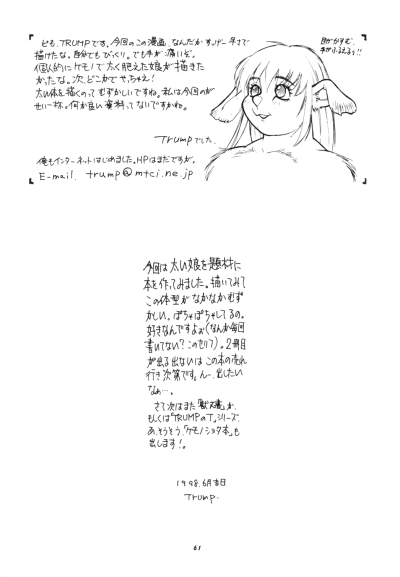 ども、TRUMPです。今回のこの漫画、なんだかすげー早さで
描けたな。自分でもびっくり。でも手が痛いぞ。
個人的にケモノで太く肥えた娘が描きた
かったな。次、どこかでやっちゃえ!
太い体を描くのってむずかしいですね。私は今回のが
せい一杯。何か良い資料ってないですかね。
目がかすむ、
手がふるえるぅ!!
Trumpでした。
俺もインターネットはじめました。HPはまだですが。
E-mail. trump@mtci.ne.jp
今回は太い娘を題材に
本を作ってみました。描いてみて
この体型がなかなかむず
かしい。ぽちゃぽちゃしてるの。
好きなんですよぉ(なんか毎回
書いてない?このセリフ)。2冊目
が出る出ないはこの本の売れ
行き次第です。んー、出したい
なぁ…。
さて次はまた「獣
もしくは「TRUMPのT」シリーズ、
あ、そうそう、「ケモノショタ本」も
出します!。
1998.6月吉日
Trump.
61